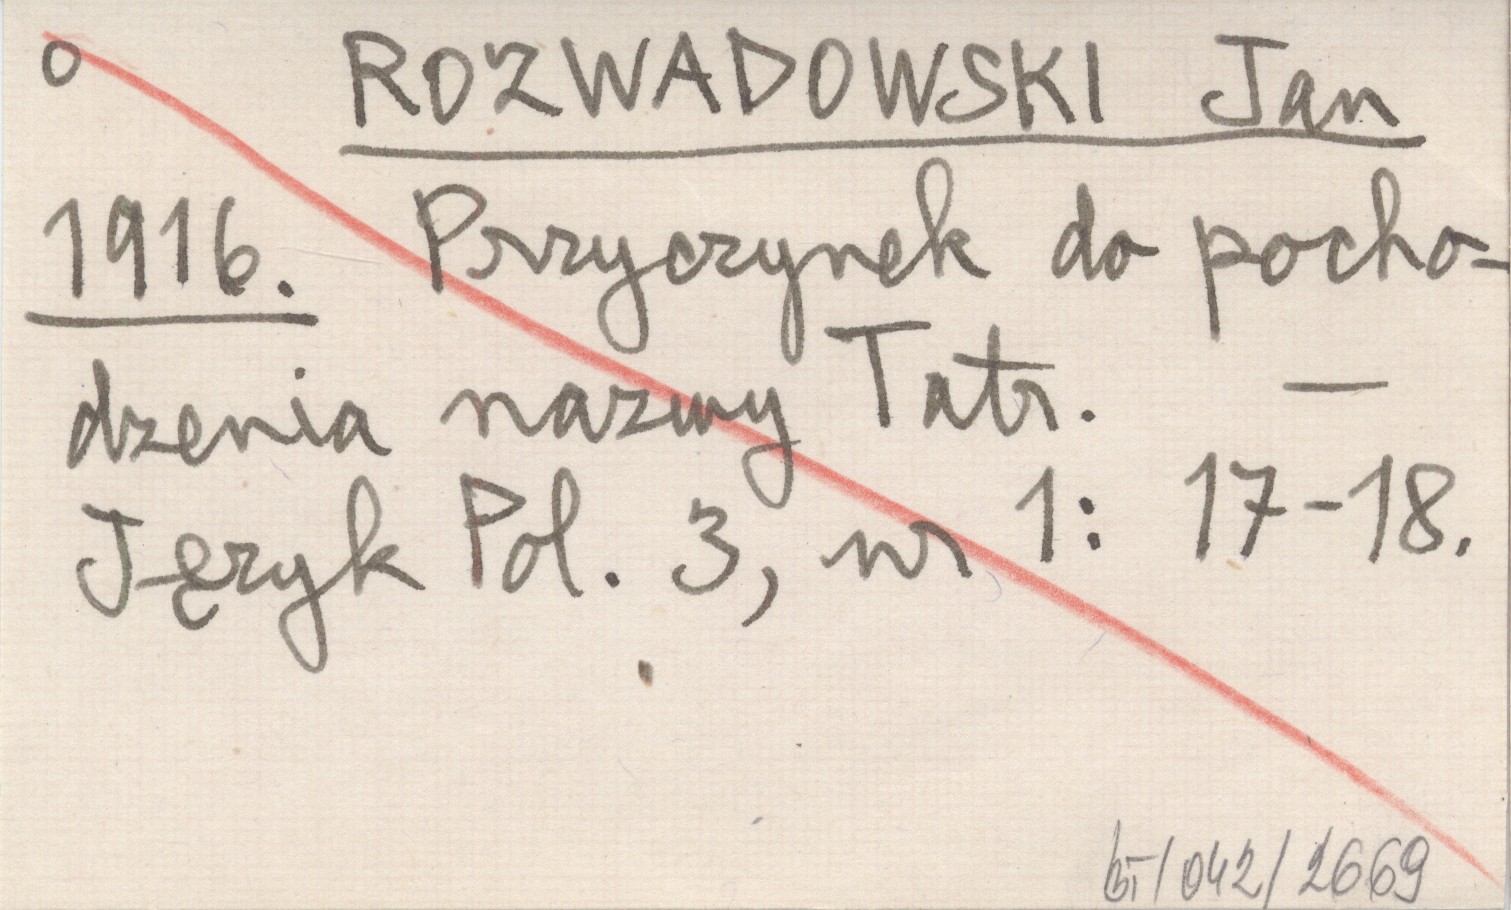 o ROZWADOWSKI Jan
1916. Przyczynek do pocho-
dzenia nazwy Tatr. —
Język Pol. 3, nr 1: 17-18.
BT/042/2669